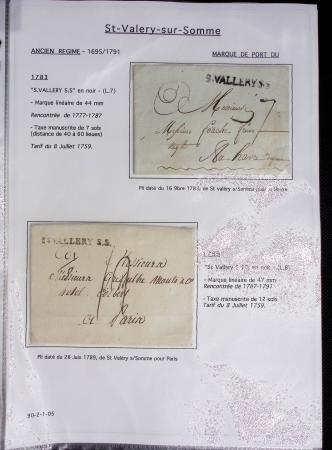 St-Valery-sur-Somme
ANCIEN REGIME - 1695/1791
MARQUE DE PORT DU
1783
"S.VALLERY S.S" en noir - (L.7)
- Marque linéaire de 44 mm
Rencontrée de 1777-1787
- Taxe manuscrite de 7 sols
(distance de 40 à 60 lieues)
Tarif du 8 Juillet 1759.
S.VALLERY S.S.
7
Monsieur
Pli daté du 16 9bre 1783, de St Valéry s/Somme pour le Havre
S.VALLERY S.S.
Messieurs
hotel
A Paris
"St Vallery
- Marque linéaire de 47 mm
Rencontrée de 1787-1791
- Taxe manuscrite de 12 sols
Tarif du 8 Juillet 1759.
Pli daté du 26 Juin 1789, de St Valéry s/Somme pour Paris
80-2-1-05